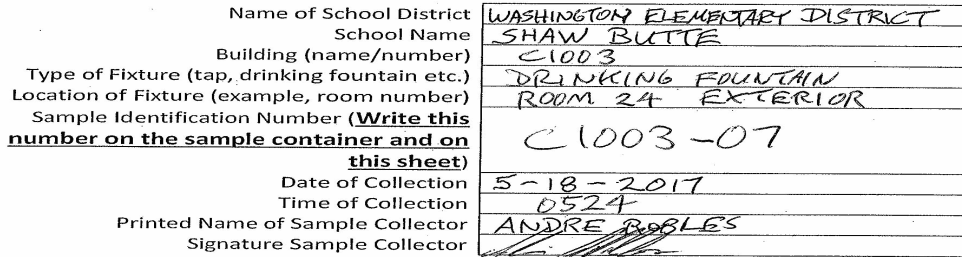 Name of School District WASHINGTON ELEMENTARY DISTRICT
School Name SHAW BUTTE
Building (name/number) C1003
Type of Fixture (tap, drinking fountain etc.) DRINKING FOUNTAIN
Location of Fixture (example, room number) ROOM 24 EXTERIOR
Sample Identification Number (Write this
number on the sample container and on C1003-07
this sheet)
Date of Collection 5-18-2017
Time of Collection 0524
Printed Name of Sample Collector ANDRE ROBLES
Signature Sample Collector